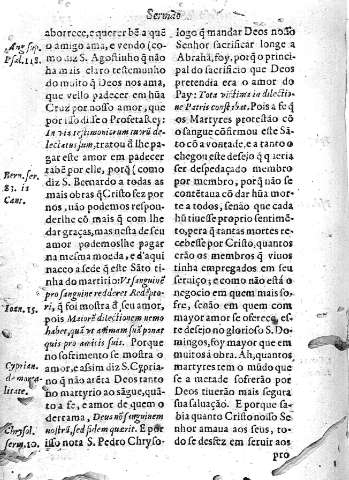 Sermão
aborrece, e querer bẽ a quẽ
o amigo ama, e vendo (co-
mo diz S. Agostinho q̃ não
ha mais claro testemunho
do muito q̃ Deos nos ama,
que vello padecer em hũa
Cruz por nosso amor, que
por isso disse o Profeta Rey:
In via testimoniorum tuorũ de-
lectatus sum, tratou q̃ lhe pa-
gar este amor em padecer
tabẽ por elle, porq̃ ( como
diz S. Bernardo a todas as
mais obras q̃ Cristo fez por
nos, não podemos respon-
derlhe cõ mais q̃ com lhe
dar graças, mas nesta de seu
amor podemoslhe pagar
na mesma moeda, e d'aqui
nacco a sede q̃ este Sãto ti-
nha do martirio: Vt sanguinẽ
pro sanguine redderet Redẽpto-
ri, q̃ foi mostra d̃ seu amor,
pois Maiorẽ dilectionem nemo
habet, quã vt animam suã ponat
quis pro amicis suis. Porque
no sofrimento se mostra o
amor, e assim diz S. Cypria-
no q̃ não atẽta Deos tanto
no martyrio ao sãgue, quã-
to a fe, e amor de quem o
derrama, Deus nõ sanguinem
nostrũ, sed fidem quærit. E por
isso nota S. Pedro Chryso-
Aug. sup.
Psal. 118.
Bern. ser.
83. in
Cant.
Ioan. 15.
Cyprian.
de morta-
litate.
Chrysol.
serm. 10.
logo q̃ mandar Deos nosso
Senhor sacrificar longe a
Abrahã, foy, porq̃ o princi-
pal do sacrificio que Deos
pretendia era o amor do
Pay: Tota victima in dilectio-
ne Patris constabat. Pois a fe q̃
os Martyres protestão cõ
o sangue cõfirmou este Sã-
to cõ a võtade, e a tanto o
chegou este desejo q̃ q̃ria
ser despedaçado membro
por membro, porq̃ não se
contẽtaua cõ dar hũa mor-
te a todos, senão que cada
hũ tiuesse proprio sentimẽ-
to, pera q̃ tantas mortes re-
cebesse por Cristo, quantos
erão os membros q̃ viuos
tinha empregados em seu
seruiço; e como não está o
negocio em quem mais so-
fre, senão em quem com
mayor amor se oferece, es-
te desejo no glorioso S. Do-
mingos, foy mayor que em
muitos á obra. Ah, quantos
martyres tem o mũdo que
se a metade sofrerão por
Deos tiuerão mais segura
sua saluação. E porque sa-
bia quanto Cristo nosso Se-
nhor amaua aos seus, to-
do se desfez em seruir aos
pro